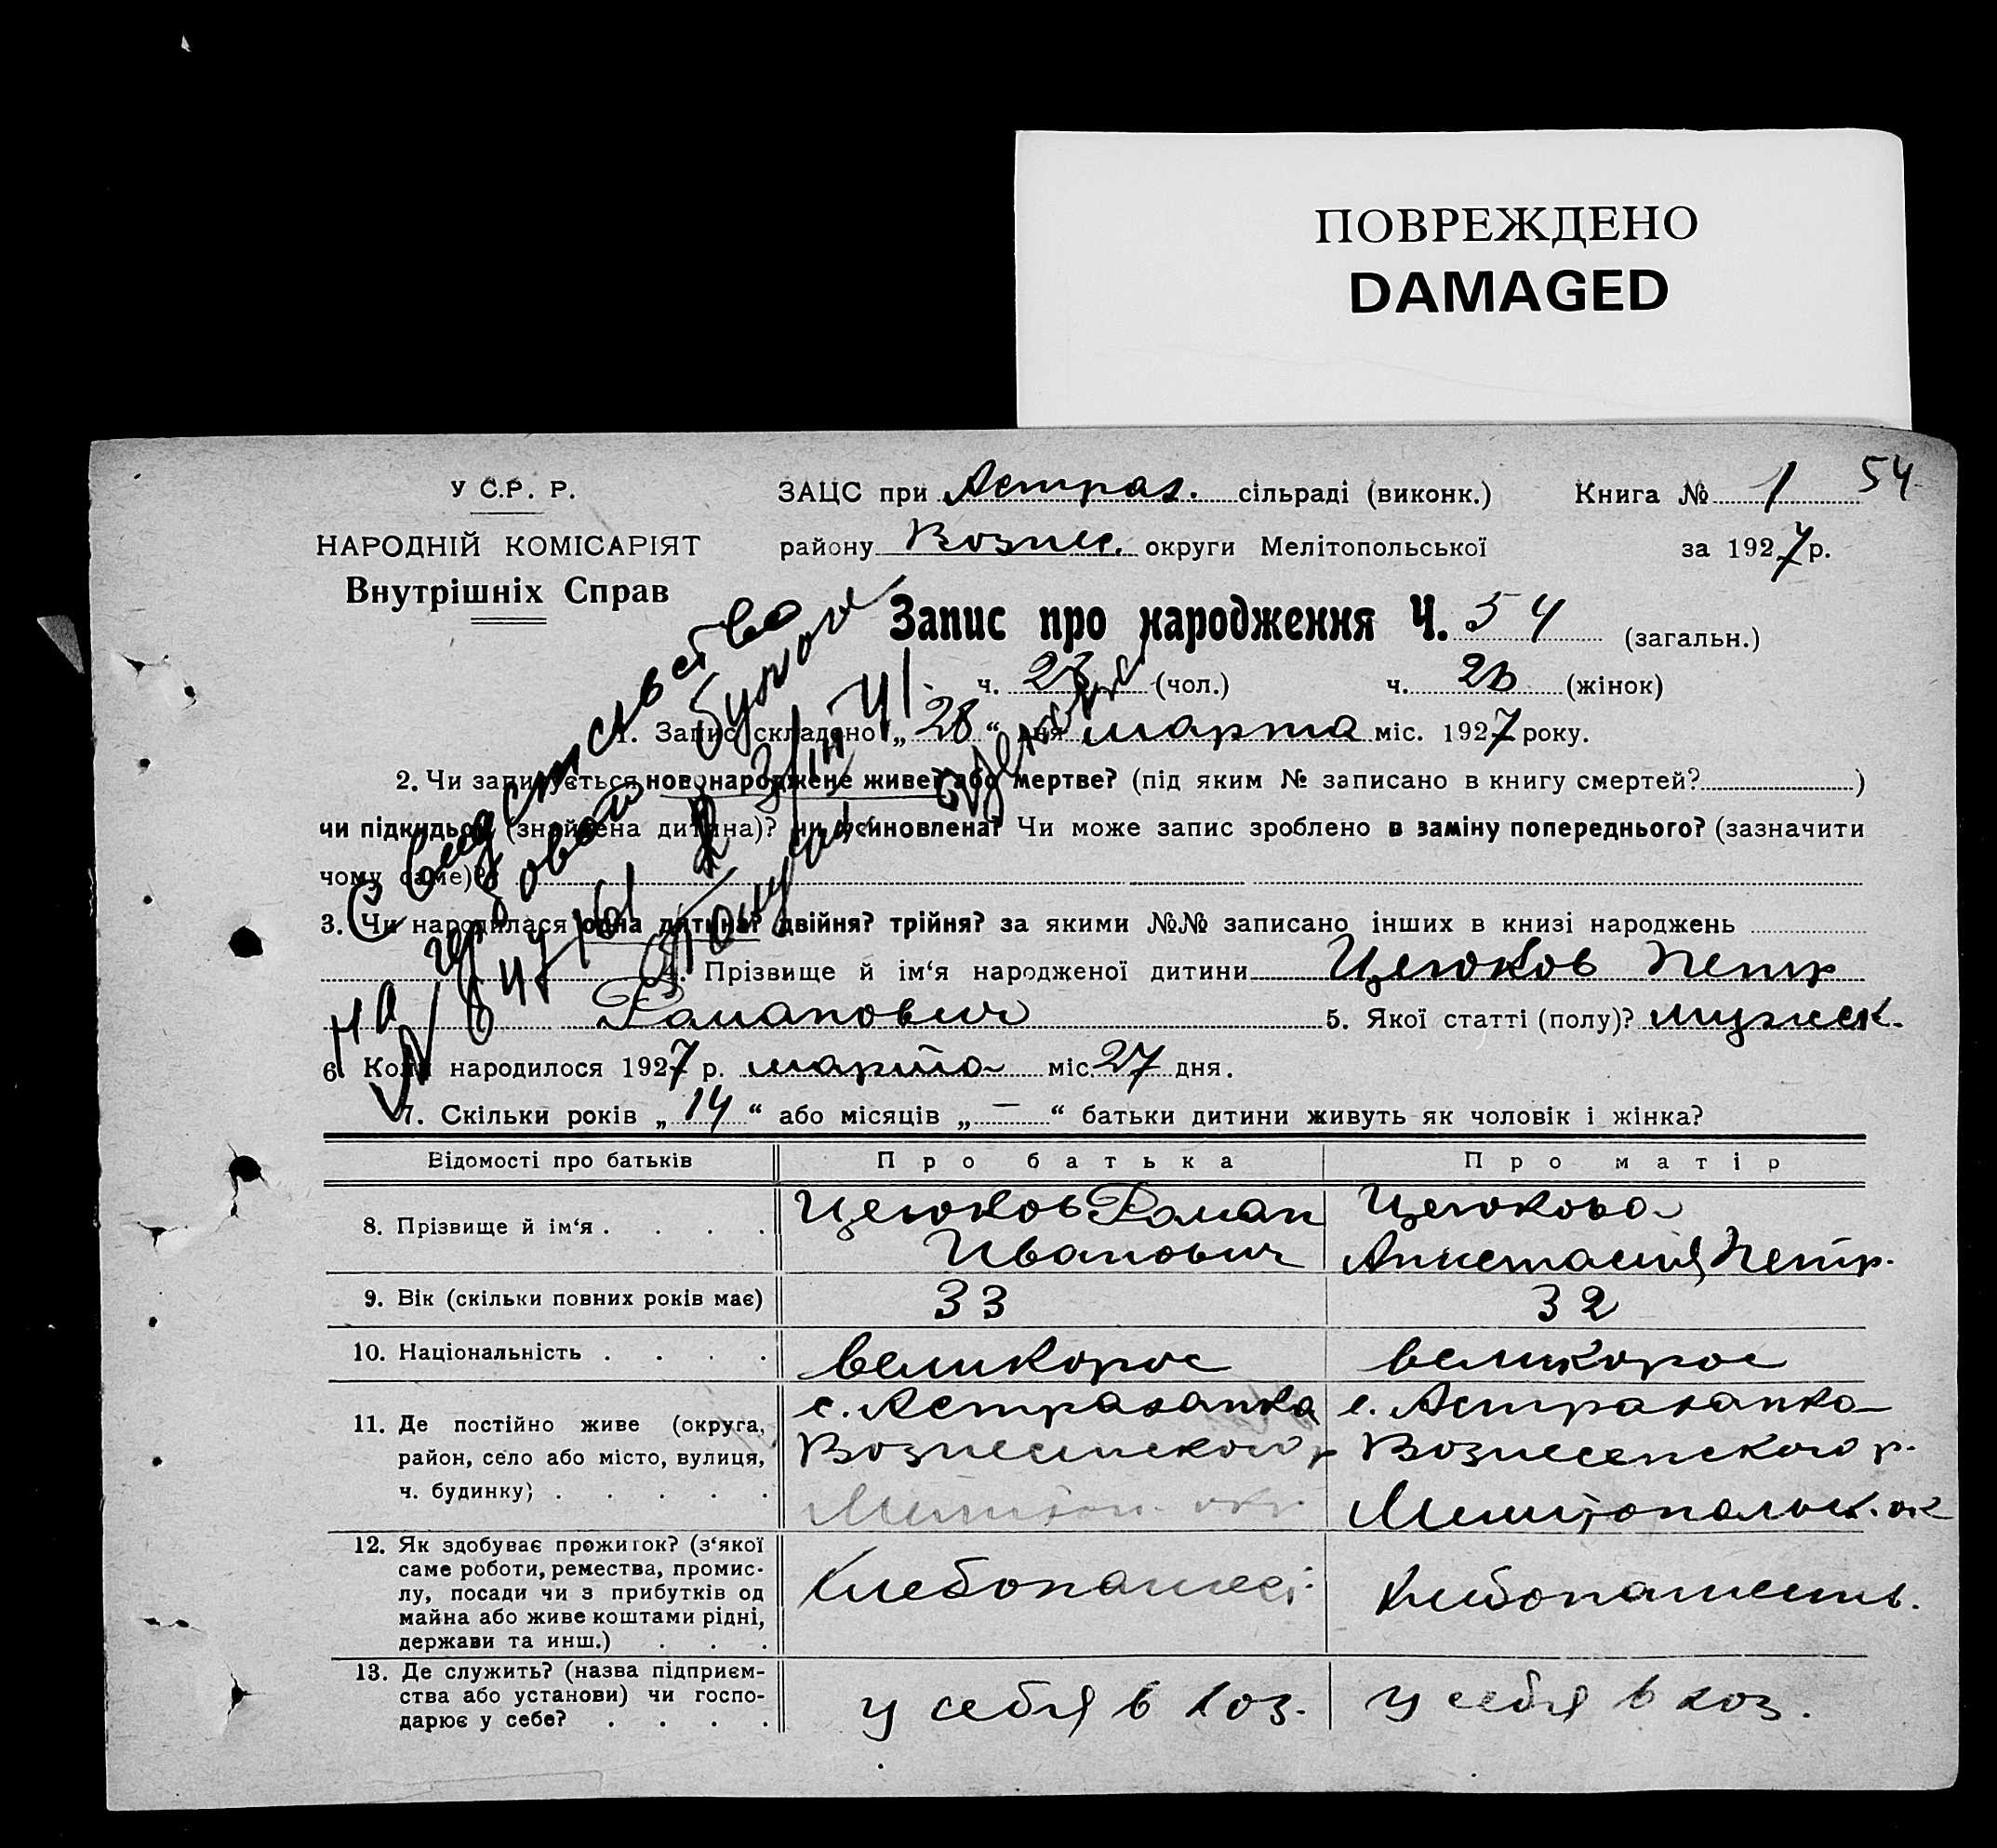 ПОВРЕЖДЕНО
DAMAGED
У С.Р. Р.
ЗАЦС при Астрах. сільраді (виконк.) Книга № 1 54
НАРОДНІЙ КОМІСАРІЯТ
району Вознес. округи Мелітопольської за 1927 р.
Внутрішніх Справ
Запис про народження Ч. 54 (загальн.)
ч. (чол.) ч. (жінок)
1. Запис складено „28“ дня марта міс. 1927 року.
2. Чи записується новонароджене живе? або мертве? (під яким № записано в книгу смертей? )
чи підкидьок (знайдена дитина)? чи усиновлена? Чи може запис зроблено в заміну попереднього? (зазначити
чому саме)?
3. Чи народилася одна дитина? двійня? трійня? за якими №№ записано інших в книзі народжень
4. Прізвище й ім‘я народженої дитини Цегоков Петр
Раманович 5. Якої статті (полу)? мужск.
6. Коли народилося 1927 р. марта міс. 27 дня.
7. Скільки років „14“ або місяців „—“ батьки дитини живуть як чоловік і жінка?
Відомості про батьків Про батька Про матір
8. Прізвище й ім‘я . . . . Цегоков Раман Иванович Цегокова Анистасия Петр.
9. Вік (скільки повних років має) 33 32
10. Національність . . . . великорос великорос
11. Де постійно живе (округа, с. Астраханка с. Астраханка
район, село або місто, вулиця, Вознесенского р Вознесенского р.
ч. будинку) . . . . . Мелитоп. окр. Мелитопольск. ок
12. Як здобуває прожиток? (з‘якої
саме роботи, ремества, промис-
лу, посади чи з прибутків од Хлебопашес. Хлебопашеств.
майна або живе коштами рідні,
держави та инш.) . . .
13. Де служить? (назва підприєм-
ства або установи) чи госпо- у себя в хоз. у себя в хоз.
дарює у себе? . . . .
С Свидетельство
гербовой бумаги